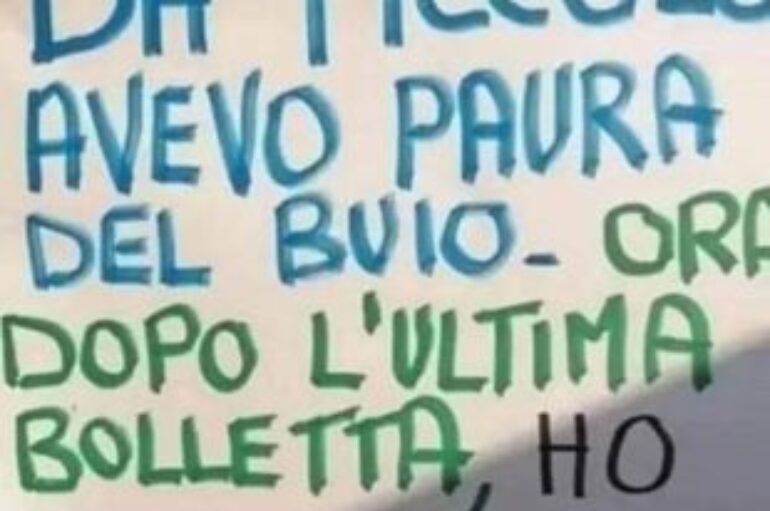 DA PICCOLO
AVEVO PAURA
DEL BUIO_ ORA
DOPO L'ULTIMA
BOLLETTA, HO